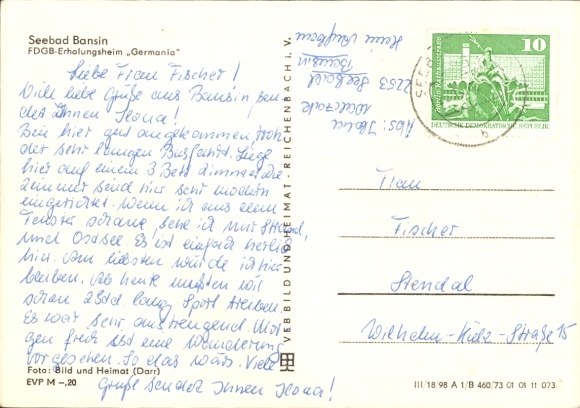 Seebad Bansin
FDGB-Erholungsheim „Germania"
Liebe Frau Fischer!
Viele liebe Grüße aus Bansin sen-
det Ihnen Ilona!
Bin hier gut angekommen trotz
der sehr langen Busfahrt. Liege
hier auf einem 3 Bett Zimmer. Die
Zimmer sind hier sehr modern
eingerichtet. Wenn ich aus dem
Fenster schaue sehe ich nur Strand,
und Ostsee. Es ist einfach herrlich
hier. Am liebsten würde ich hier
bleiben. Ab heute mußten wir
schon 2 Std lang Sport treiben.
Es war sehr anstrengend. Mor
gen früh ist eine Wanderung
vorgesehen. So das wärs. Viele
Grüße sendet Ihnen Ilona!
Foto: Bild und Heimat (Darr)
EVP M –,20
VEB BILD UND HEIMAT · REICHENBACH i. V.
Abs: Ilona
2253 Seebad
Bansin
Heim
10
Berlin, Rathausstraße
DEUTSCHE DEMOKRATISCHE REPUBLIK
Frau
Fischer
Stendal
Wilhelm-Külz-Straße 15
III/18 98 A 1/B 460/73 01 01 11 073